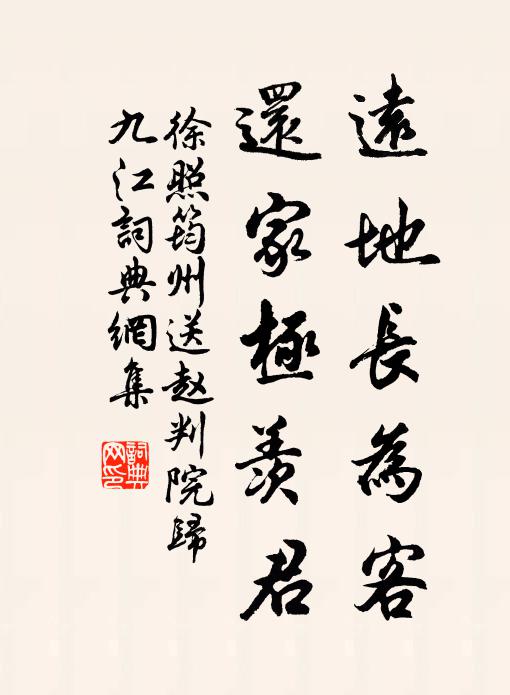 遠地長為客
還家極羨君
徐照筠州送赵判院歸
九江詞典網集
詞典
网印